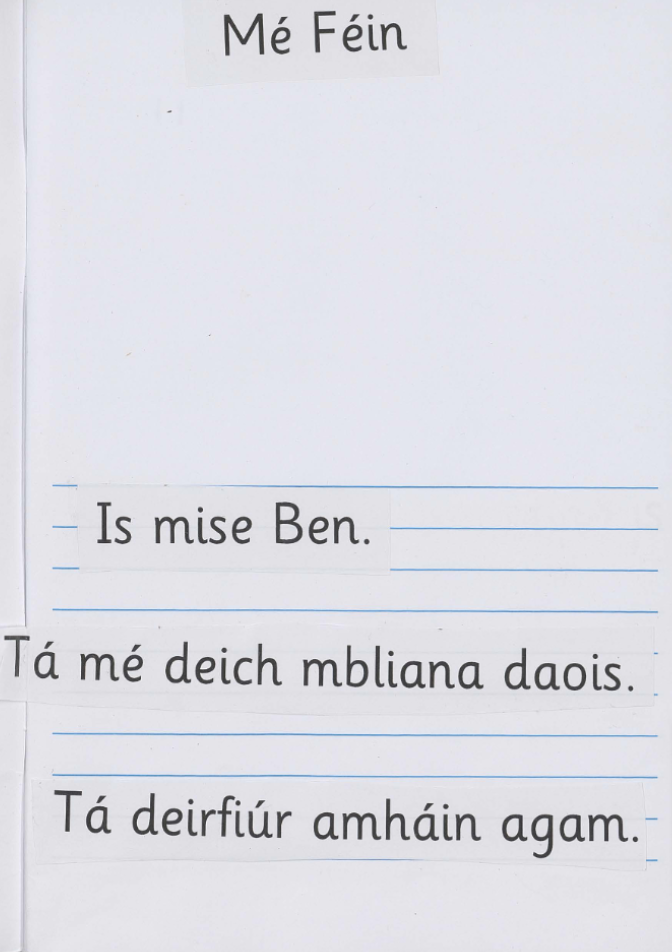 Mé Féin
Is mise Ben.
Tá mé deich mbliana daois.
Tá deirfiúr amháin agam.